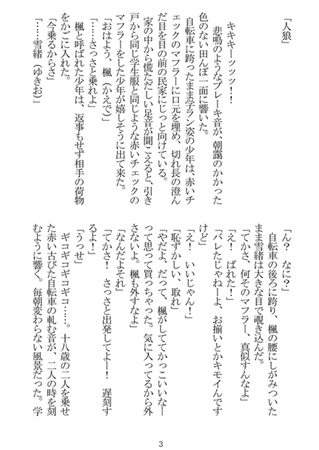 「人狼」
キキキーッッッ！！
悲鳴のようなブレーキ音が、朝靄のかかった
色のない田んぼ一面に響いた。
自転車に跨ったまま学ラン姿の少年は、赤いチ
ェックのマフラーに口元を埋め、切れ長の澄ん
だ目を目の前の民家にじっと向けている。
家の中から慌ただしい足音が聞こえると、引き
戸から同じ学生服と同じような赤いチェックの
マフラーをした少年が嬉しそうに出て来た。
「おはよう、楓（かえで）」
「……さっさと乗れよ」
楓と呼ばれた少年は、返事もせず相手の荷物
をかごに入れた。
「今乗るからさ」
「……雪緒（ゆきお）」
「ん？　なに？」
自転車の後ろに跨り、楓の腰にしがみついた
まま雪緒は大きな目で覗き込んだ。
「てかさ、何そのマフラー、真似すんなよ」
「え！　ばれた！」
「バレたじゃねーよ、お揃いとかキモイんです
けど」
「え！　いいじゃん！」
「恥ずかしい、取れ」
「やだよ、だって、楓がしててかっこいいなー
って思って買っちゃった。気に入ってるから外
さないよ。楓も外すなよ」
「なんだよそれ」
「てかさ！　さっさと出発してよー！　遅刻す
るよ！」
「うっせ」
ギコギコギコギコ……。十八歳の二人を乗せ
た赤い古びた自転車の軋む音が、二人の時を刻
むように響く。毎朝変わらない風景だった。学
3